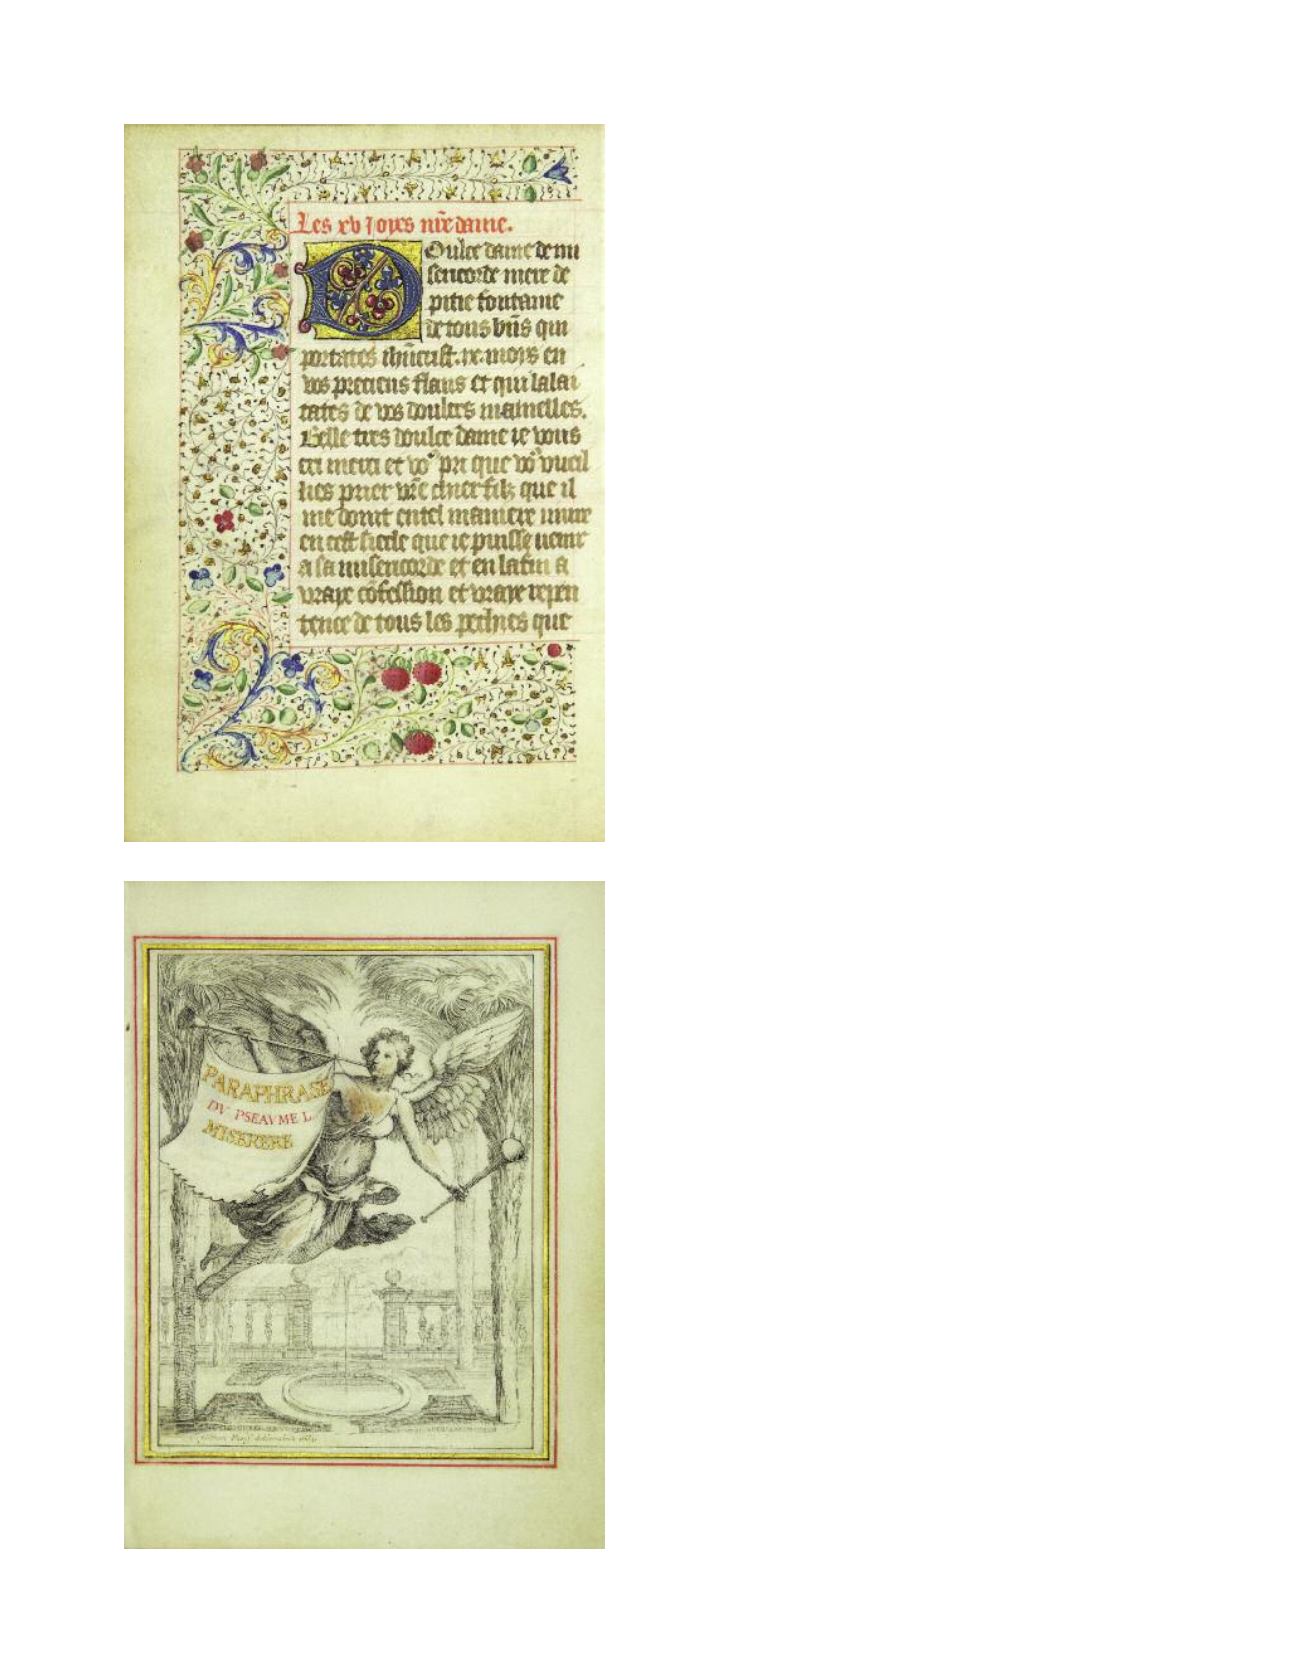 Les xv Joyes nr̃e dame.
Oulce dame de mi
sericorde mere de
pitie fontaine
de tous biẽs qui
portates ihũcrist .ix. mois en
vos precieus flans et qui lalai
tates de vos doulces mamelles.
Belle tres doulce dame ie vous
cri merci et vo⁹ pri que vo⁹ vueil
lies prier vr̃e chier filz que il
me doint en tel maniere viure
en cest siecle que ie puisse venir
a sa misericorde et en la fin a
vraye cõfession et vraye repen
tence de tous les pechies que
PARAPHRASE
DV PSEAVME L
MISERERE